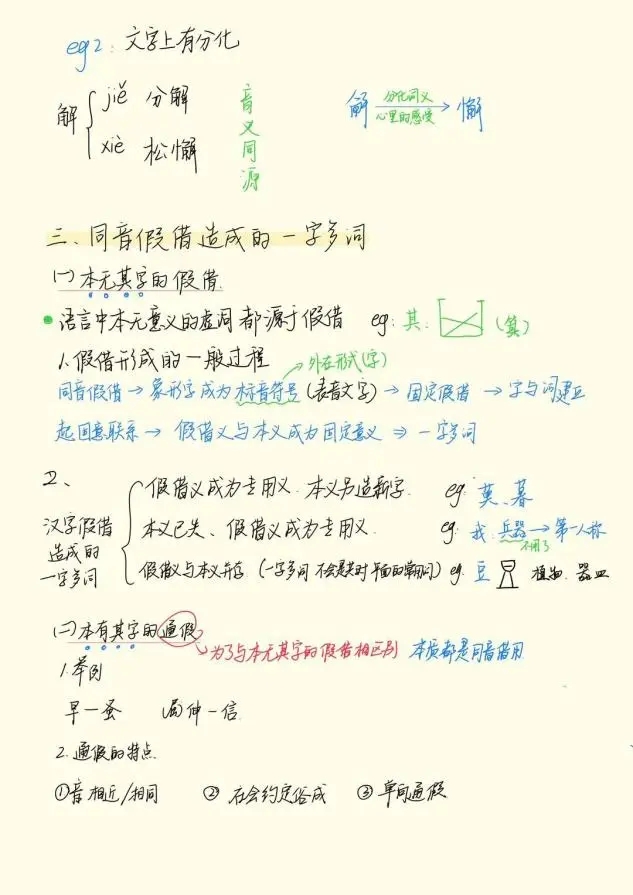 eg2: 文字上有分化
解 jiě 分解
xiè 松懈
音义同源
解 分化词义 心里的感受 → 懈
三、同音假借造成的一字多词
(一)本无其字的假借
语言中本无意义的虚词都源于假借 eg: 其. (箕)
1.假借形成的一般过程 → 外在形式(字)
同音假借 → 象形字成为标音符号(表音文字) → 固定假借 → 字与词建立
起固定联系 → 假借义与本义成为固定意义 ⇒ 一字多词
2、
汉字假借造成的一字多词
假借义成为专用义. 本义另造新字. eg: 莫、暮
本义已失、假借义成为专用义. eg: 我: 兵器 → 第一人称
不用了
假借义与本义并存 (一字多词 不会是共时平面的常用词) eg. 豆 植物. 器皿
(二)本有其字的通假
为了与本无其字的假借相区别 本质都是同音借用
1.举例
早—蚤 屈伸—信
2.通假的特点
①音相近/相同 ② 社会约定俗成 ③ 单向通假